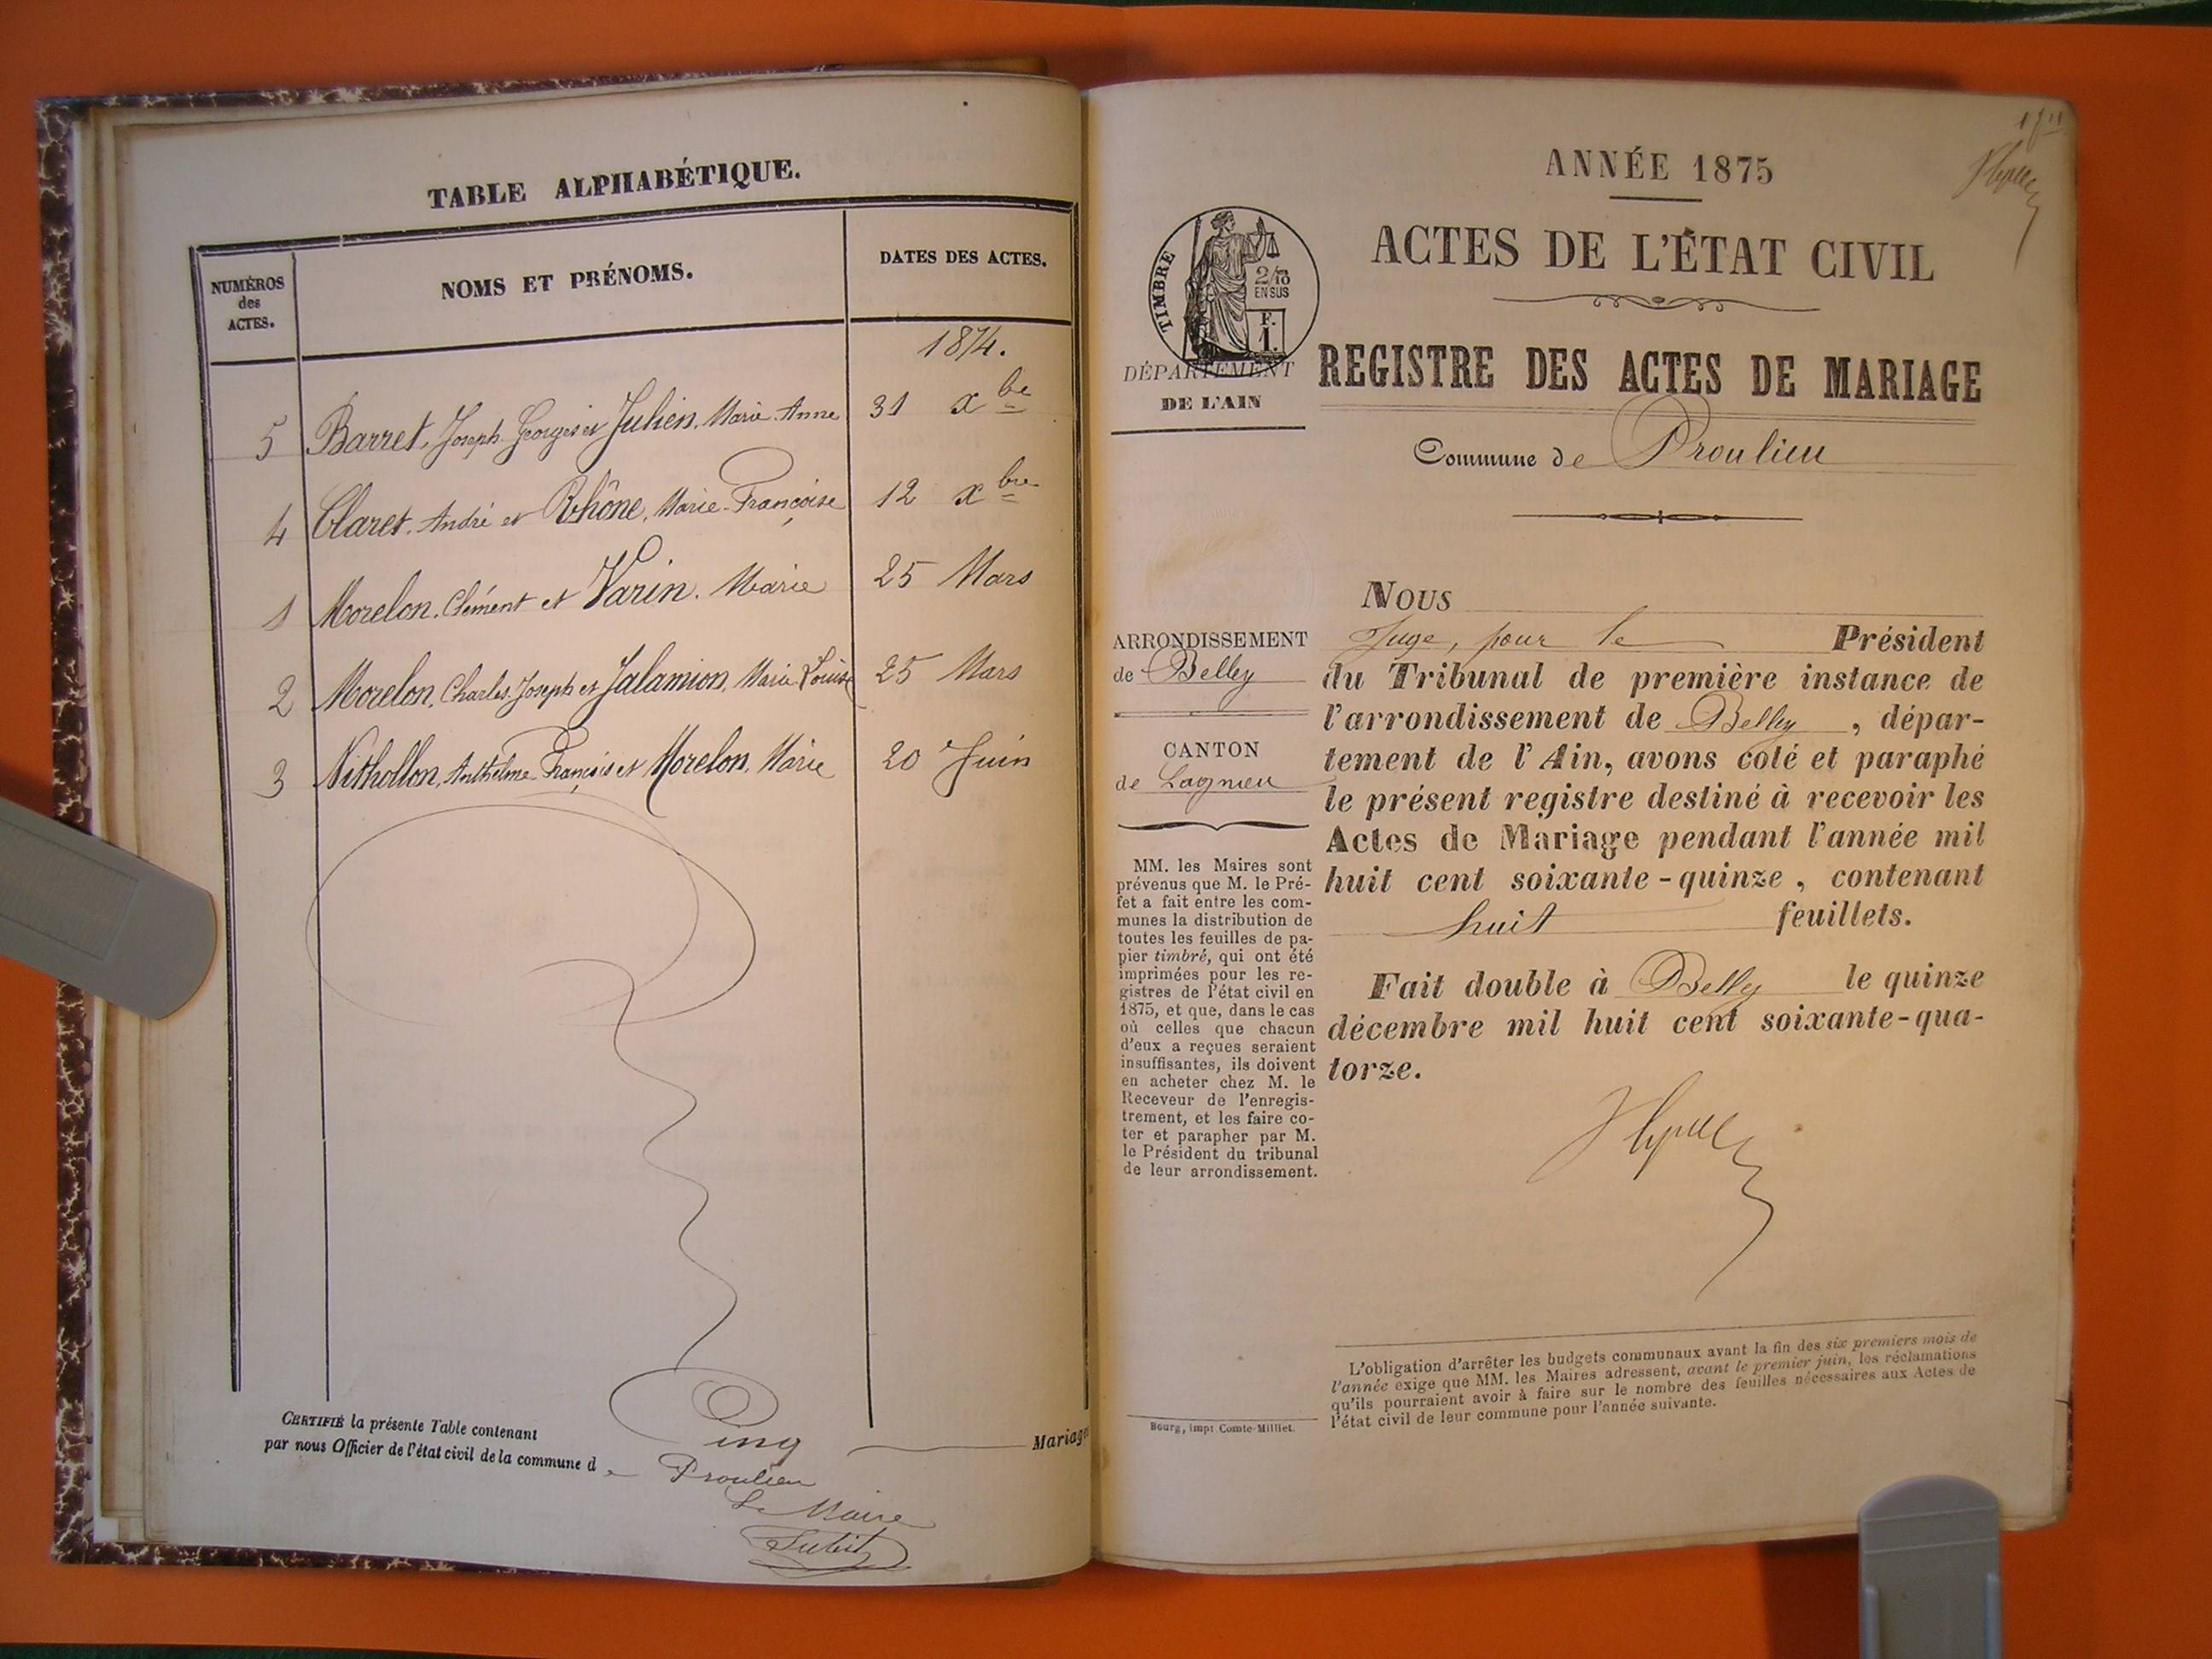 TABLE ALPHABÉTIQUE.
NUMÉROS
des
ACTES.
NOMS ET PRÉNOMS.
DATES DES ACTES.
1874.
5 Barret, Joseph Georges et Julien, Marie Anne 31 xbre
4 Claret, André et Rhône, Marie-Françoise 12 xbre
1 Morelon, Clément et Varin, Marie 25 Mars
2 Morelon, Charles Joseph et Jalamion, Marie Louise 25 Mars
3 Nithollon, Anthelme François et Morelon, Marie 20 Juin
CERTIFIÉ la présente Table contenant Cinq Mariages
par nous Officier de l'état civil de la commune de Proulieu
Le Maire
1 f
ANNÉE 1875
ACTES DE L'ÉTAT CIVIL
TIMBRE
2/10
EN SUS
F.
1.
DÉPARTEMENT
DE L'AIN
REGISTRE DES ACTES DE MARIAGE
Commune de Proulieu
ARRONDISSEMENT
de Belley
CANTON
de Lagnieu
MM. les Maires sont
prévenus que M. le Pré-
fet a fait entre les com-
munes la distribution de
toutes les feuilles de pa-
pier timbré, qui ont été
imprimées pour les re-
gistres de l'état civil en
1875, et que, dans le cas
où celles que chacun
d'eux a reçues seraient
insuffisantes, ils doivent
en acheter chez M. le
Receveur de l'enregis-
trement, et les faire co-
ter et parapher par M.
le Président du tribunal
de leur arrondissement.
Nous
Juge, pour le Président
du Tribunal de première instance de
l'arrondissement de Belley, dépar-
tement de l'Ain, avons coté et paraphé
le présent registre destiné à recevoir les
Actes de Mariage pendant l'année mil
huit cent soixante-quinze, contenant
huit feuillets.
Fait double à Belley le quinze
décembre mil huit cent soixante-qua-
torze.
L'obligation d'arrêter les budgets communaux avant la fin des six premiers mois de
l'année exige que MM. les Maires adressent, avant le premier juin, les réclamations
qu'ils pourraient avoir à faire sur le nombre des feuilles nécessaires aux Actes de
l'état civil de leur commune pour l'année suivante.
Bourg, impr Comte-Milliet.